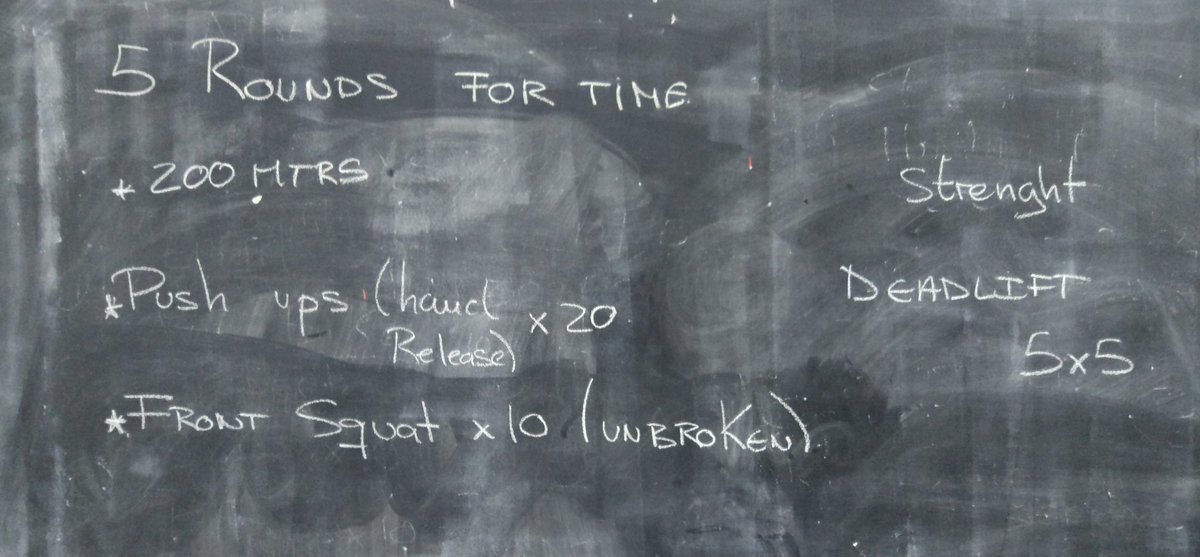 5 ROUNDS FOR TIME
* 200 MTRS
* Push ups (hand Release) x 20
* FRONT Squat x 10 (UNBROKEN)
Strenght
DEADLIFT
5x5